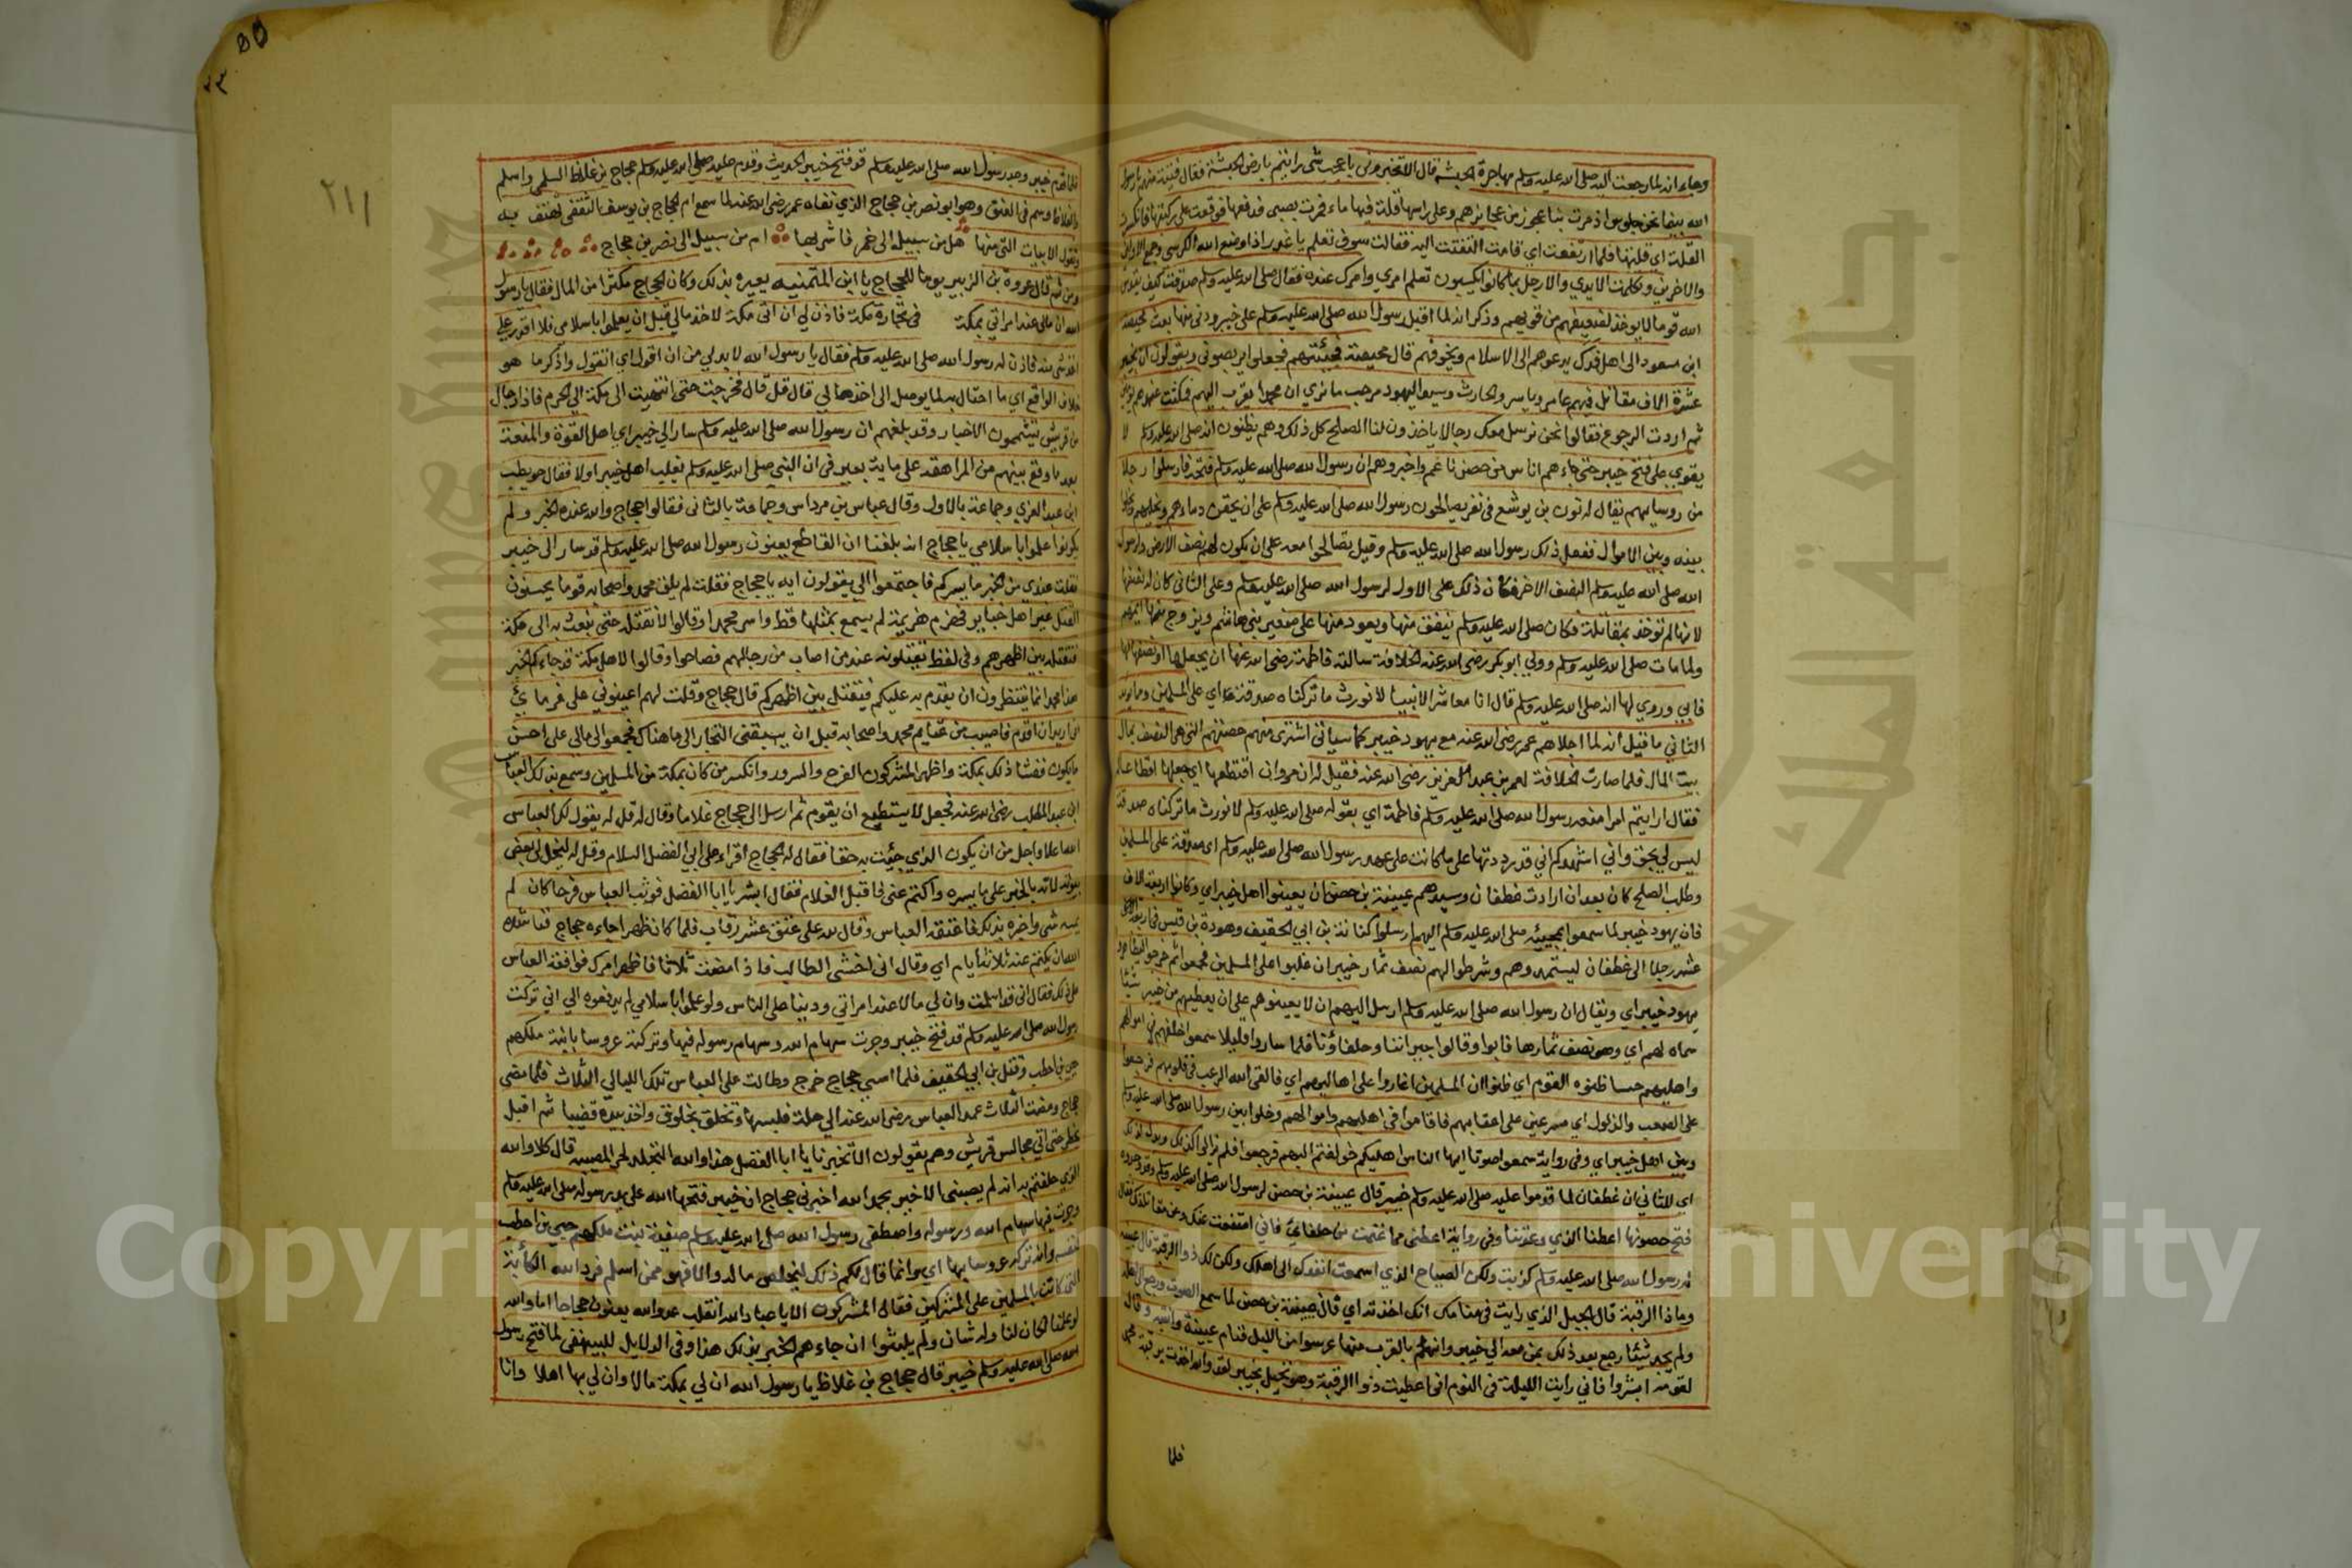 وجاء انه لما رجعت اليه صلى الله عليه وسلم مهاجرة الحبشة قال الا تخبروني باعجب شي رايتم بارض الحبشة فقال فتية منهم يا رسول
الله بينما نحن جلوس اذ مرت بنا عجوز من عجايزهم وعلى راسها قلة فيها ماء فمرت بصبي فدفعها فوقعت على ركبتها فانكسرت
القلة اي قلتها فلما ارتفعت اي قامت التفتت اليه فقالت سوف تعلم يا غدر اذا وضع الله الكرسي وجمع الاولين
والاخرين وتكلمت الايدي والارجل بما كانوا يكسبون تعلم امري وامرك عنده فقال صلى الله عليه وسلم صدقت كيف يقدس
الله قوما لا يوخذ لضعيفهم من قويهم وذكر انه لما اقبل رسول الله صلى الله عليه وسلم على خيبر ودنى منها بعث محيصة
ابن مسعود الى اهل فدك يدعوهم الى الاسلام ويخوفهم قال محيصة فجئتهم فجعلوا يربصوني ويقولون ان بخيبر
عشرة الاف مقاتل فيهم عامر وياسر والحارث وسيد اليهود مرحب ما نري ان محمدا يقرب اليهم فمكثت عندهم يومين
ثم اردت الرجوع فقالوا نحن نرسل معك رجالا ياخذون لنا الصلح كل ذلك وهم يظنون انه صلى الله عليه وسلم لا
يقوي على فتح خيبر حتى جاءهم اناس من حصن ناعم واخبروهم ان رسول الله صلى الله عليه وسلم فتحه فارسلوا رجلا
من روسايهم يقال له نون بن يوشع في نفر يصالحون رسول الله صلى الله عليه وسلم على ان يحقن دماءهم ويخليهم
بينه وبين الاموال ففعل ذلك رسول الله صلى الله عليه وسلم وقيل تصالحوا معه على ان يكون لهم نصف الارض ولرسول
الله صلى الله عليه وسلم النصف الاخر فكان ذلك على الاول لرسول الله صلى الله عليه وسلم وعلى الثاني كان له نصفها
لانها لم توخذ بمقاتلة فكان صلى الله عليه وسلم ينفق منها ويعود منها على صغير بني هاشم ويزوج منها ايمهم
ولما مات صلى الله عليه وسلم وولي ابو بكر رضي الله عنه الخلافة سالته فاطمة رضي الله عنها ان يجعلها او نصفها لها
فابي وروي لها انه صلى الله عليه وسلم قال انا معاشر الانبيا لا نورث ما تركناه صدقة اي على المسلمين
الثاني ما قيل انه لما اجلاهم عمر رضي الله عنه مع يهود خيبر كما سياتي اشترى منهم حصتهم التي هي النصف بمال
بيت المال فلما صارت الخلافة لعمر بن عبد العزيز رضي الله عنه فقيل له ان مروان اقتطعها اي جعلها اقطاعا
فقال ارايتم امرا منعه رسول الله صلى الله عليه وسلم فاطمة اي بقوله صلى الله عليه وسلم لا نورث ما تركناه صدقة
ليس لي بحق واني اشهدكم اني قد رددتها على ما كانت على عهد رسول الله صلى الله عليه وسلم اي صدقة على المسلمين
وطلب الصلح كان بعد ان ارادت غطفان وسيدهم عيينة بن حصن ان يعينوا اهل خيبر اي وكانوا اربعة الاف
فان يهود خيبر لما سمعوا بمجيئه صلى الله عليه وسلم اليهم ارسلوا كنانة بن ابي الحقيق وهودة بن قيس في اربعة
عشر رجلا الى غطفان ليستمدوهم وشرطوا لهم نصف ثمار خيبر ان غلبوا على المسلمين فجمعوا ثم خرجوا ليظاهروا
يهود خيبر اي ويقال ان رسول الله صلى الله عليه وسلم ارسل اليهم ان لا يعينوهم على ان يعطيهم من خيبر شيئا
سماه لهم اي وهو نصف ثمارها فابوا وقالوا جيراننا وحلفاؤنا فلما ساروا قليلا سمعوا خلفهم في اموالهم
واهليهم حسا ظنوه القوم اي ظنوا ان المسلمين اغاروا على اهاليهم اي فالقى الله الرعب في قلوبهم فرجعوا
على الصعب والذلول اي مسرعين على اعقابهم فاقاموا في اهليهم واموالهم وخلوا بين رسول الله صلى الله عليه وسلم
وبين اهل خيبر اي وفي رواية سمعوا صوتا ايها الناس اهليكم خولفتم اليهم فرجعوا فلم يروا لذلك
اي للثاني ان غطفان لما قدموا عليه صلى الله عليه وسلم خيبر قال عيينة بن حصن لرسول الله صلى الله عليه وسلم وقد وجده
فتح حصونها اعطنا الذي وعدتنا وفي رواية اعطني مما غنمت من حلفاي فاني امتنعت عنك وعن مقاتلتك فقال
له رسول الله صلى الله عليه وسلم كذبت ولكن الصياح الذي اسمعت انفذك الى اهلك ولكن لك ذو الرقيبة قال عيينة
وما ذا الرقيبة قال الجبل الذي رايت في منامك انك اخذته اي فان عيينة بن حصن لما سمع الصوت ورجع الى اهله
ولم يجد شيئا رجع بعد ذلك بمن معه الي خيبر وانهم بالقرب منها عرسوا من الليل فنام عيينة وانتبه وقال
لقومه ابشروا فاني رايت الليلة في النوم اني اعطيت ذو الرقيبة وهو جبل بخيبر لقد والله اخذت برقبة محمد
فلما
فلما قدم خيبر وجد رسول الله صلى الله عليه وسلم قد فتح خيبر الحديث وقدم عليه صلى الله عليه وسلم حجاج بن علاط السلمي واسلم
وهو ابو نصر بن حجاج الذي نفاه عمر رضي الله عنه لما سمع ام الحجاج بن يوسف الثقفي تهتف به
وتقول الابيات التي منها هل من سبيل الى خمر فاشربها ام من سبيل الى نصر بن حجاج
ومن ثم قال عروة بن الزبير يوما للحجاج يا ابن المتمنيه يعيره بذلك وكان الحجاج مكثرا من المال فقال يا رسول
الله ان مالي عند امراتي بمكة في تجارة مكة فاذن لي ان اتي مكة لاخذ مالي قبل ان يعلموا باسلامي فلا اقدر على
اخذ شي منه فاذن له رسول الله صلى الله عليه وسلم فقال يا رسول الله لا بد لي من ان اقول اي اتقول واذكر ما هو
خلاف الواقع اي ما احتال به لما يوصل الى اخذ مالي قال قل قال فخرجت حتى انتهيت الى مكة الى الحرم فاذا رجال
من قريش يتشممون الاخبار وقد بلغهم ان رسول الله صلى الله عليه وسلم سار الي خيبر اي اهل القوة والمنعة
بعد ما وقع بينهم من المراهقة على ماية بعير في ان النبي صلى الله عليه وسلم يغلب اهل خيبر اولا فقال حويطب
ابن عبد العزي وجماعة بالاول وقال عباس بن مرداس وجماعة بالثاني فقالوا حجاج والله عنده الخبر ولم
يكونوا علموا باسلامي يا حجاج انه بلغنا ان القاطع يعنون رسول الله صلى الله عليه وسلم قد سار الى خيبر
فقلت عندي من الخبر ما يسركم فاجتمعوا الي يقولون ايه يا حجاج فقلت لم يلق محمد واصحابه قوما يحسنون
القتل غير اهل خيبر فهزم هزيمة لم يسمع بمثلها قط واسر محمد وقالوا لا نقتله حتى نبعث به الى مكة
فنقتله بين اظهرهم وفي لفظ يقتلونه عند من اصاب من رجالهم فصاحوا وقالوا لاهل مكة قد جاءكم الخبر
هذا محمد انما تنتظرون ان يقدم به عليكم فيقتل بين اظهركم قال حجاج وقلت لهم اعينوني على غرمائي
اني اريد ان اقدم فاصيب من غنايم محمد واصحابه قبل ان يسبقني التجار الى ما هناك فجمعوا لي مالي على احسن
ما يكون ففشا ذلك بمكة واظهر المشركون الفرح والسرور وانكسر من كان بمكة من المسلمين وسمع بذلك العباس
ابن عبد المطلب رضي الله عنه فجعل لا يستطيع ان يقوم ثم ارسل الى حجاج غلاما وقال له قل له يقول لك العباس
الله اعلا واجل من ان يكون الذي جئت به حقا فقال له الحجاج اقراء على ابي الفضل السلام وقل له ليخل لي بعض
بيوته لاته بالخبر على ما يسره واكتم عني فاقبل الغلام فقال ابشر يا ابا الفضل فوثب العباس فرحا كان لم
يمسه شي واخبره بذلك فاعتقه العباس وقال لله على عتق عشر رقاب فلما كان ظهرا جاءه حجاج فناشده
الله ان يكتم عنه ثلاثة ايام اي وقال اني اخشى الطالب فاذا مضت ثلاثا فاظهر امرك فوافقه العباس
على ذلك فقال اني قد اسلمت وان لي مالا عند امراتي ودينا على الناس ولو علموا باسلامي لم يدفعوه الي اني تركت
رسول الله صلى الله عليه وسلم قد فتح خيبر وجرت سهام الله وسهام رسوله فيها وتركته عروسا بابنة ملكهم
حيي بن اخطب وقتل بن ابي الحقيق فلما امسي حجاج خرج وطالت على العباس تلك الليالي الثلاث فلما مضى
حجاج ومضت الثلاث عمد العباس رضي الله عنه الي حلة فلبسها وتخلق بخلوق واخذ بيده قضيبا ثم اقبل
يخطر حتى اتى مجالس قريش وهم يقولون لا تخبرنا يا ابا الفضل هذا والله التجلد لحر المصيبة قال كلا والله
الذي حلفتم به انه لم يصبني الا خير بحمد الله اخبرني حجاج ان خيبر فتحها الله على يد رسوله صلى الله عليه وسلم
وجرت فيها سهام الله ورسوله واصطفى رسول الله صلى الله عليه وسلم صفية بنت ملكهم حيي بن اخطب
لنفسه وانه تركه عروسا بها اي وانما قال لكم ذلك ليخلص ماله والا فهو ممن اسلم فرد الله الكأبة
التي كانت بالمسلمين على المشركين فقال المشركون الا يا عباد الله انفلت عدو الله يعنون حجاجا اما والله
لو علمنا لكان لنا وله شان ولم يلبثوا ان جاءهم الخبر بذلك هذا وفي الدلايل للبيهقي لما فتح رسول
الله صلى الله عليه وسلم خيبر قال حجاج بن علاط يا رسول الله ان لي بمكة مالا وان لي بها اهلا وانا
٢١١
Copyright © King Saud University